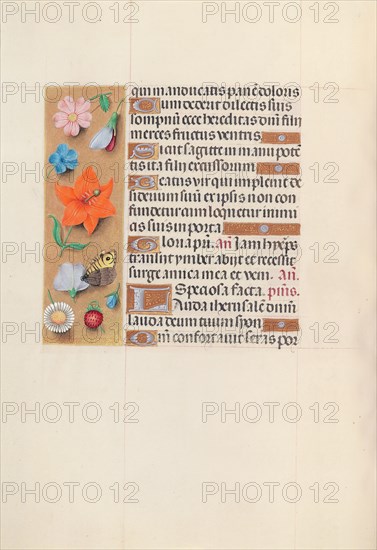 qui manducatis panē doloris
Cum dederit dilectis suis
sompnum ecce hereditas dn̄i filii
merces fructus ventris
Sicut sagitte in manu potē
tis ita filii excussorum
Beatus vir qui implevit de
siderium suū ex ipsis non con
fundetur cum loquetur inimi
cis suis in porta
Gloria pr̄i. añ Jam hyēps
transiit ymber abiit et recessit
surge amica mea et veni. añ.
Speciosa facta. psm̄s.
Lauda iherusalē dn̄m
lauda deum tuum syon
Qm̄ confortavit seras por
PHOTO 12